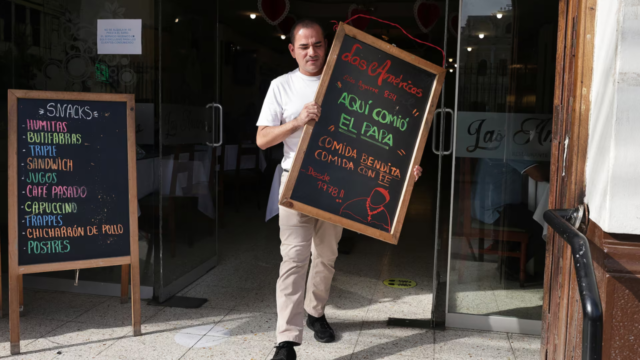 SNACKS
HUMITAS
BUTIFARRAS
TRIPLE
SANDWICH
JUGOS
CAFÉ PASADO
CAPUCCINO
FRAPPES
CHICHARRÓN DE POLLO
POSTRES
Las Américas
"AQUÍ COMIÓ
EL PAPA"
COMIDA BENDITA
COMIDA CON FE
Desde
1978!!
Las Am